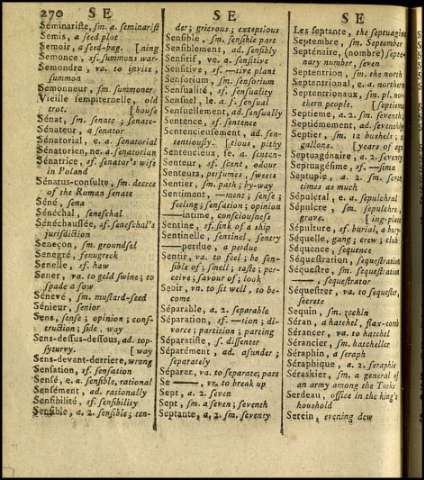 270 S E
Séminariste, sm. a seminarist
Semis, a seed plot
Semoir, a seed-bag. [ning
Semonce, sf. summons war-
Semondre, va. to invite,
summon
Semonneur, sm. summoner
Vieille sempiternelle, old
trot. [house
Sénat, sm. senate; senate-
Sénateur, a senator
Sénatorial, e. a. senatorial
Sénatorien, ne. a. senatorian
Sénatrice, sf. senator's wife
in Poland
Sénatus-consulte, sm. decree
of the Roman senate
Séné, sena
Sénéchal, seneschal
Sénéchaussée, sf. seneschal's
jurisdiction
Seneçon, sm. groundsel
Senegré, fenugreek
Senelle, sf. haw
Sener, va. to geld swine; to
spade a sow
Senevé, sm. mustard-seed
Sénieur, senior
Sens, sense; opinion; cons-
truction; side, way
Sens-dessus-dessous, ad. top-
syturvy. [way
Sens-devant-derriere, wrong
Sensation, sf. sensation
Sensé, e. a. sensible, rational
Sensément, ad. rationally
Sensibilité, sf. sensibility
Sensible, a. 2. sensible; ten-
S E
der; grievous; exceptious
Sensible, sm. sensible part
Sensiblement, ad. sensibly
Sensitif, ve. a. sensitive
Sensitive, sf. —tive plant
Sensorium, sm. sensorium
Sensualité, sf. sensuality
Sensuel, le. a. s. sensual
Sensuellement, ad. sensually
Sentence, sf. sentence
Sentencieusement, ad. sen-
tentiously. [tious, pithy
Sentencieux, se. a. senten-
Senteur, sf. scent, odour
Senteurs, perfumes, sweets
Sentier, sm. path; by-way
Sentiment, —ment; sense;
feeling; sensation; opinion
—intime, consciousness
Sentine, sf. sink of a ship
Sentinelle, sentinel, sentry
—perdue, a perdue
Sentir, va. to feel; be sen-
sible of; smell; taste; per-
ceive; savour of; look
Seoir, va. to sit well, to be-
come
Séparable, a. 2. separable
Séparation, sf. —tion; di-
vorce; partition; parting
Séparatiste, s. dissenter
Séparément, ad. asunder;
separately
Séparer, va. to separate; part
Se —, va. to break up
Sept, a. 2. seven
Sept, sm. a seven; seventh
Septante, a. 2. sm. seventy
S E
Les septante, the septuagint
Septembre, sm. September
Septénaire, (nombre) septe-
nary number, seven
Septentrion, sm. the north
Septentrional, e. a. northern
Septentrionaux, sm. pl. nor-
thern people. [septième
Septieme, a. 2. sm. seventh
Septièmement, ad. seventhly
Septier, sm. 12 bushels; 2
gallons. [years of age
Septuagénaire, a. 2. seventy
Septuagésime, sf. —sima
Septuple, a. 2. sm. seven
times as much
Sépulcral, e. a. sepulchral
Sépulcre, sm. sepulchre,
grave.
Sépulture, sf. burial, a bury-
Séquelle, gang; crew; club
Séquence, sequence
Séquestration, sequestration
Séquestre, sm.
—, sequestrator
Séquestrer, va. to sequester,
secrete
Sequin, sm. zechin
Séran, a hatchel, flax-comb
Sérancer, va. to hatchel
Sérancier, sm. hatcheller
Séraphin, a seraph
Séraphique, a. 2. seraphic
Séraskier, sm. a general of
an army among the Turks
Serdeau, office in the king's
houshold
Serein, evening dew